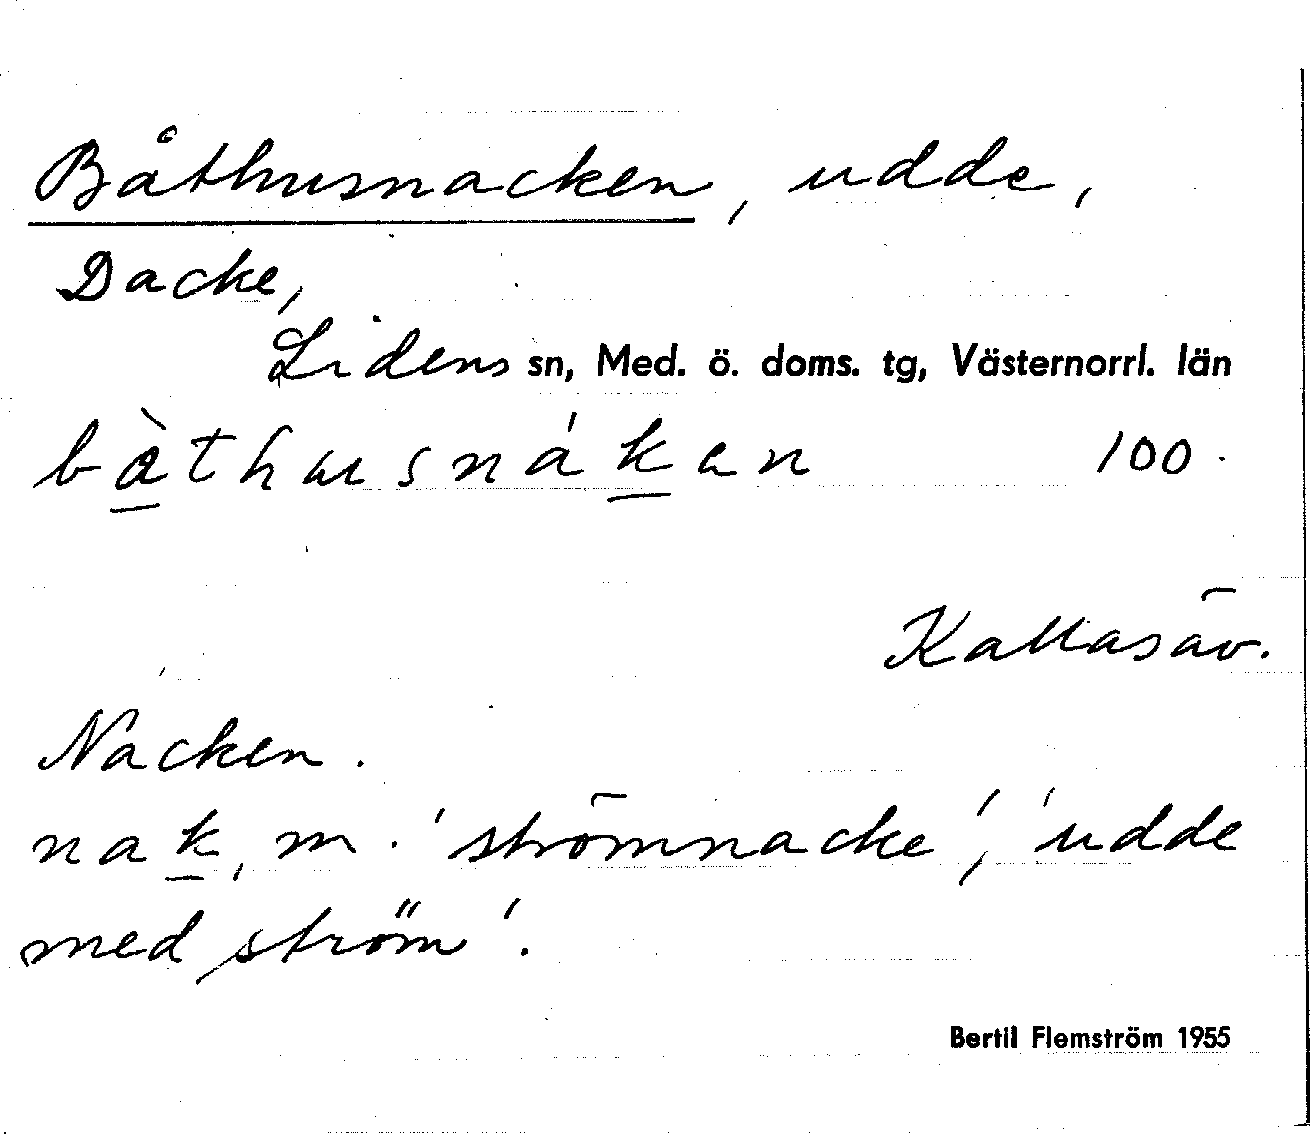 Båthusnacken, udde,
Dacke,
Lidens sn, Med. ö. doms. tg, Västernorrl. län
bàthusnákan 100.
Nacken.
nak, m. 'strömnacke', 'udde
med ström'.
Bertil Flemström 1955